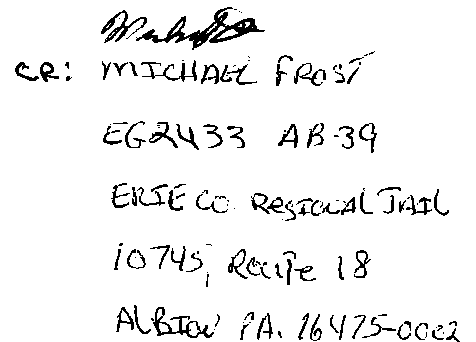 CR: MICHAEL FROST
EG2433 AB-39
ERIE CO REGIONAL JAIL
10745, ROUTE 18
ALBION PA. 16475-0002